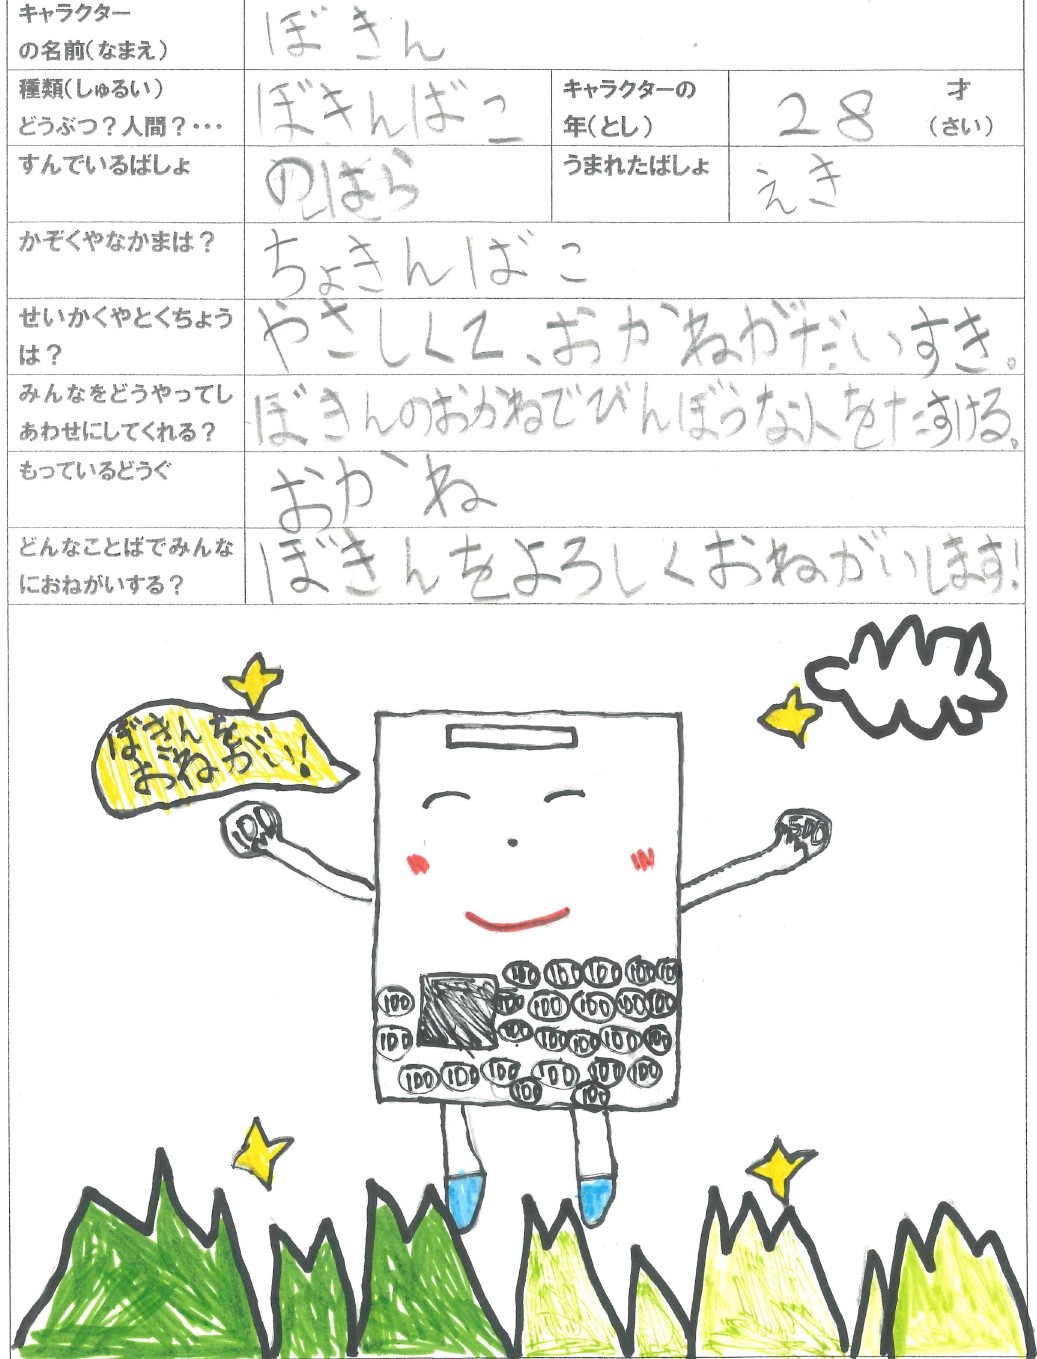 キャラクター
の名前(なまえ)
ぼきん
種類(しゅるい)
どうぶつ?人間?・・・
ぼきんばこ
キャラクターの
年(とし)
28
才
(さい)
すんでいるばしょ
のはら
うまれたばしょ
えき
かぞくやなかまは?
ちょきんばこ
せいかくやとくちょう
は?
やさしくて、おかねがだいすき。
みんなをどうやってし
あわせにしてくれる?
ぼきんのおかねでびんぼうな人をたすける。
もっているどうぐ
おかね
どんなことばでみんな
におねがいする?
ぼきんをよろしくおねがいします!
ぼきんを
おねがい!
100
500
100 100 100 100 10
100 100 100 100 100 100
100 100 100 100 100 100
100 100 100 100 100 100
100 100